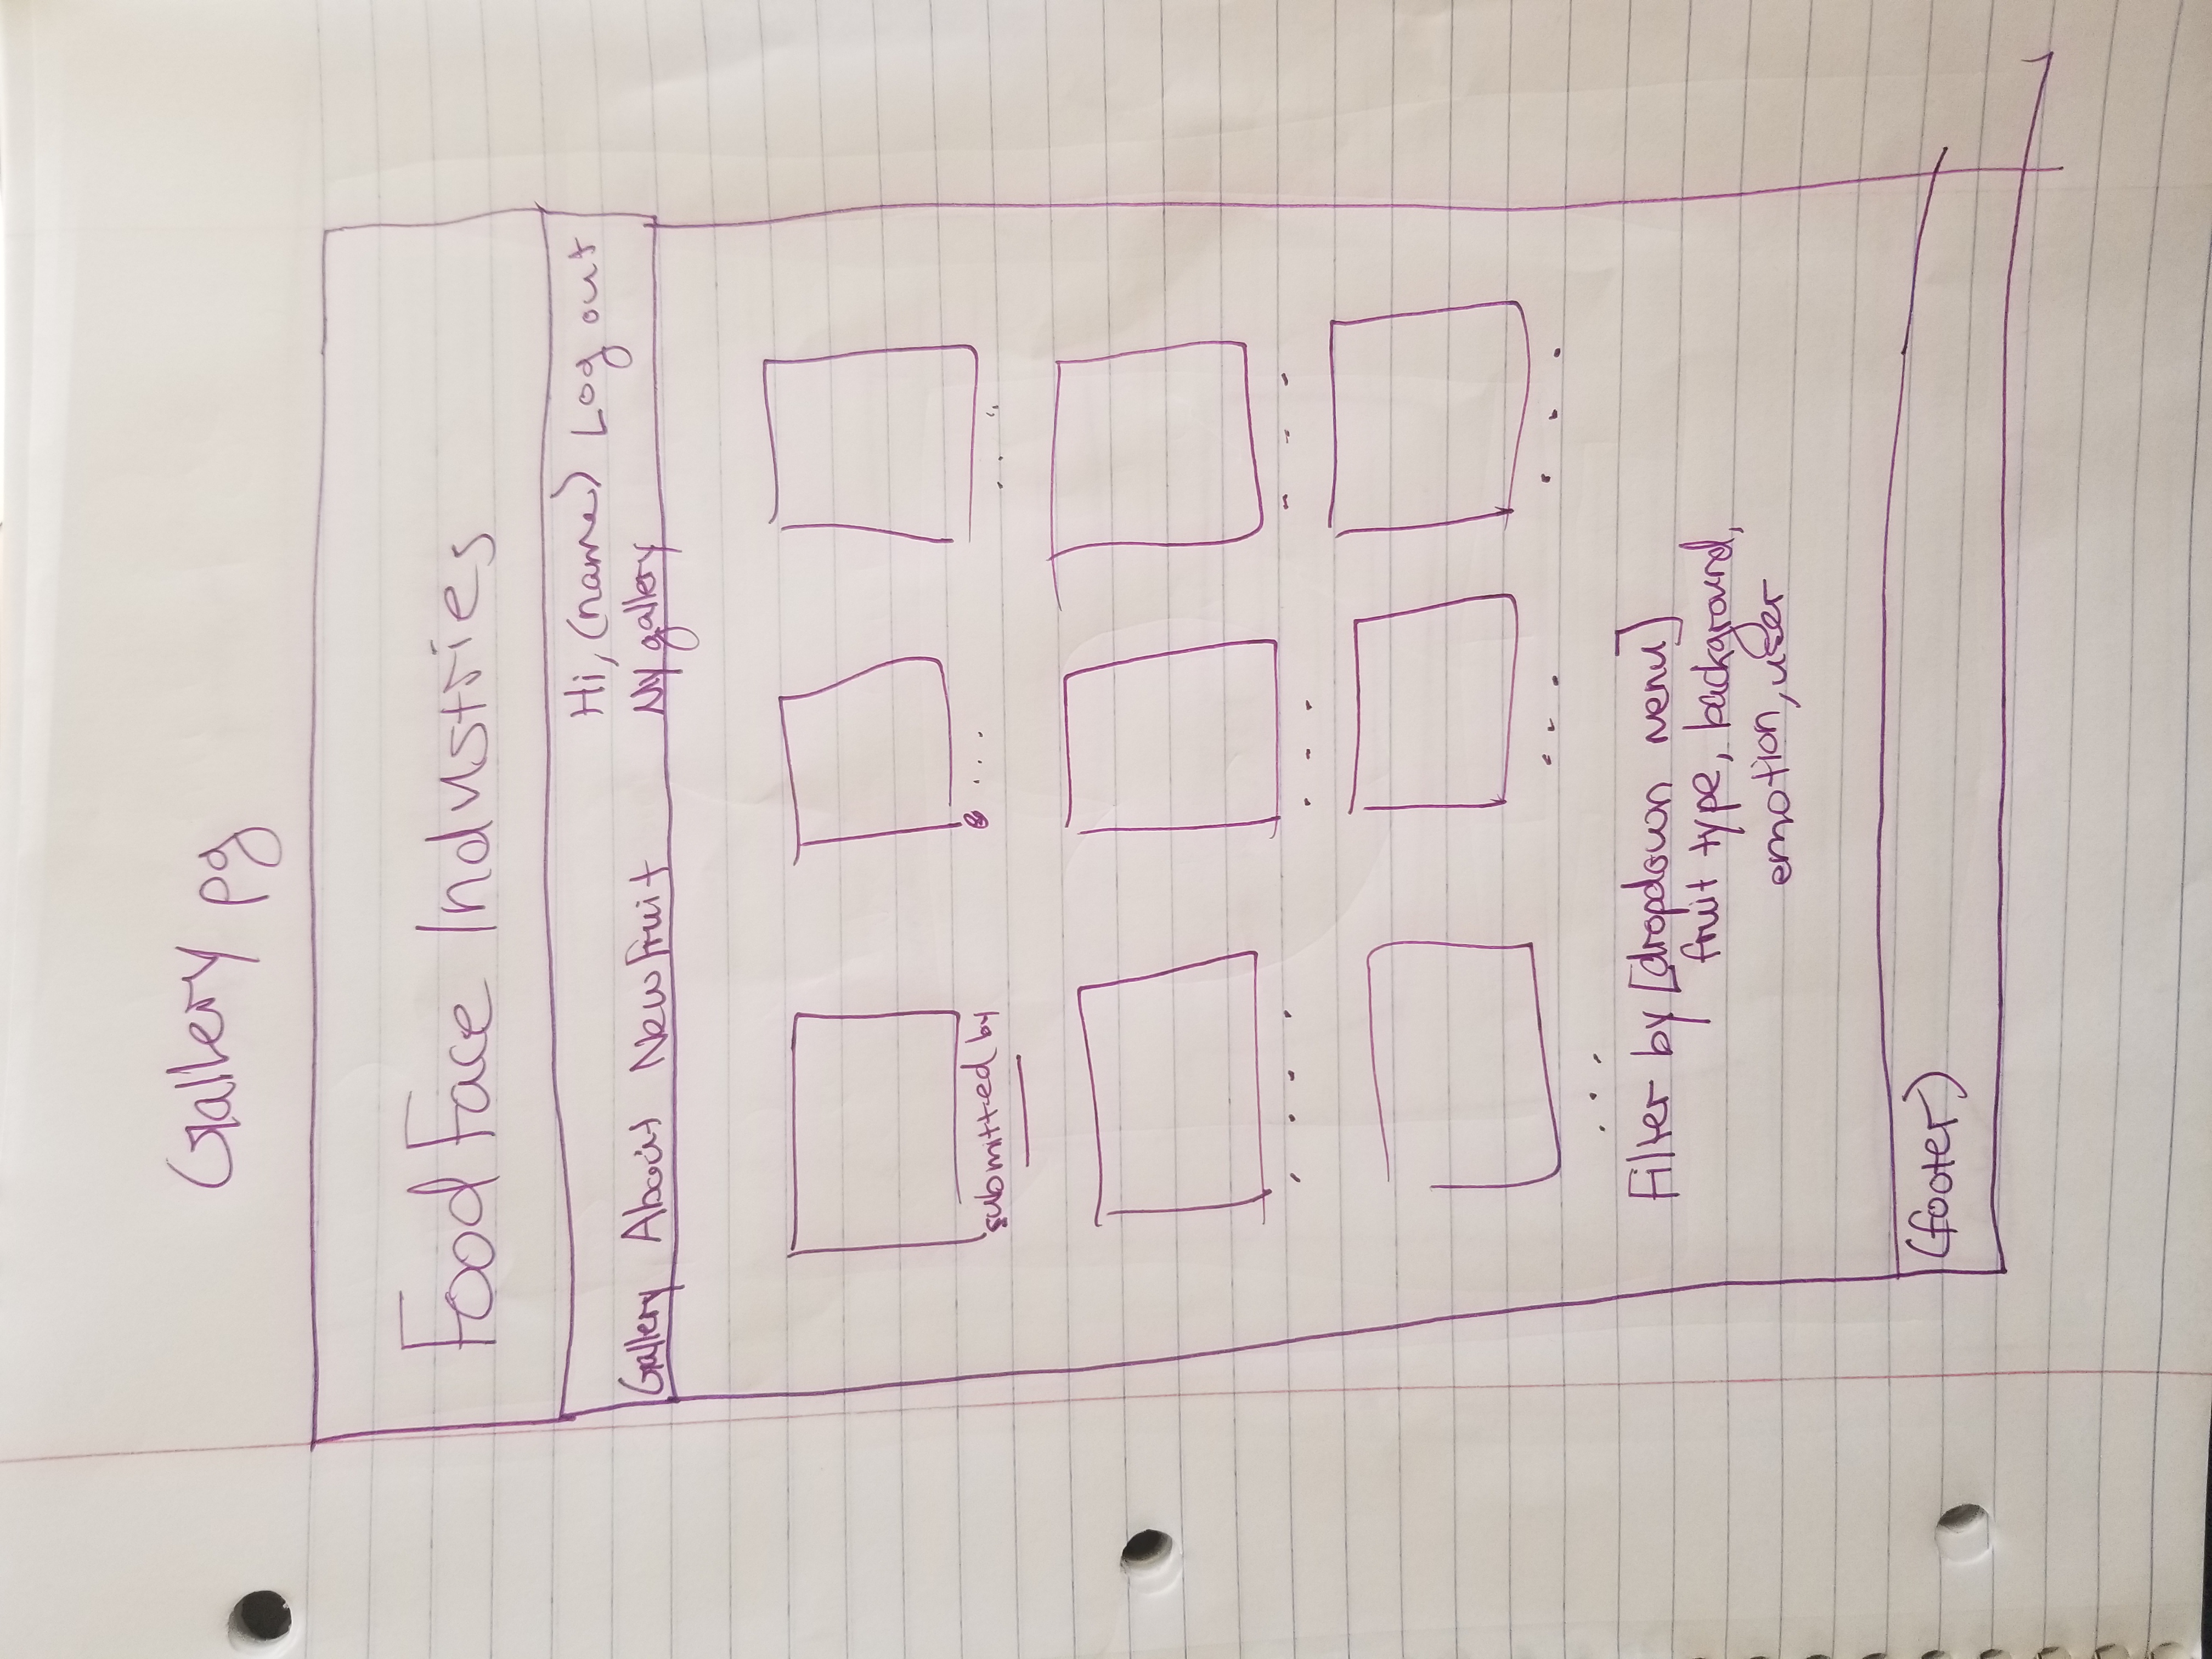 Gallery pg
Food Face Industries
Hi, (name) Log out
Gallery About New Fruit My gallery
submitted by
...
...
....
...
...
...
...
...
Filter by [dropdown menu]
fruit type, background,
emotion, user
(footer)